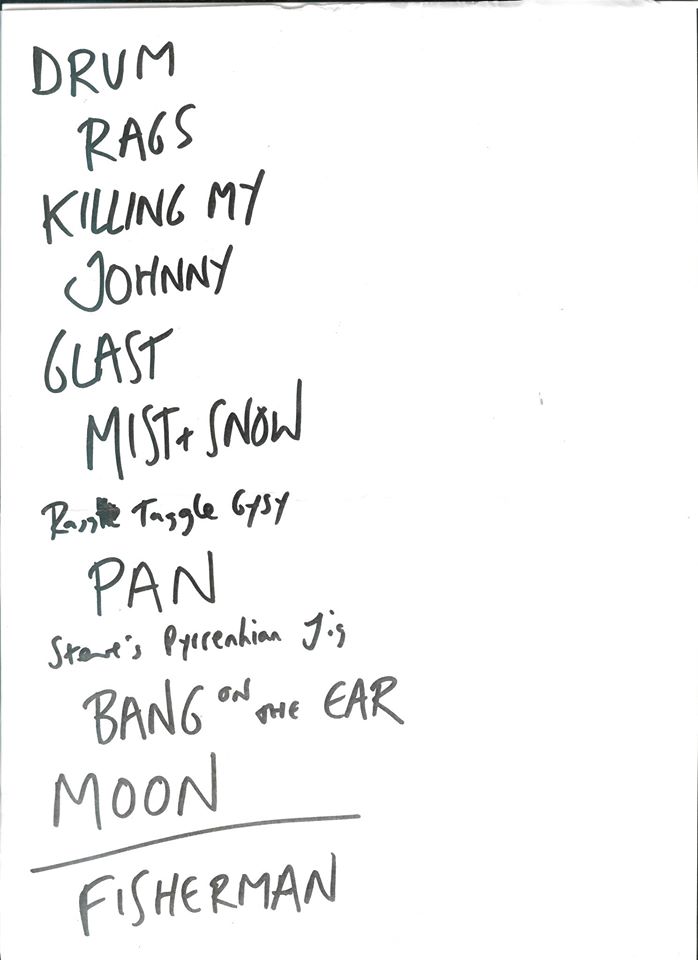 DRUM
RAGS
KILLING MY
JOHNNY
GLAST
MIST + SNOW
Raggle Taggle Gysy
PAN
Steve's Pyrrenhian Jig
BANG ON THE EAR
MOON
FISHERMAN